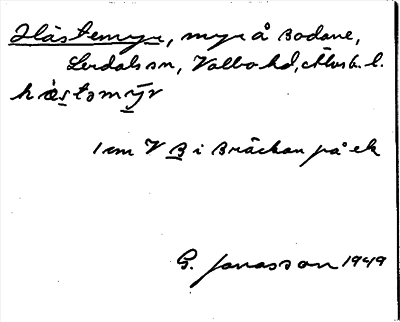 Hästemyr, myr å Bodane,
Lerdals sn, Valbo hd, Älvsb. l.
hæstəmỹr
1 cm V B i Bräckan på ek
G. Jonasson 1949